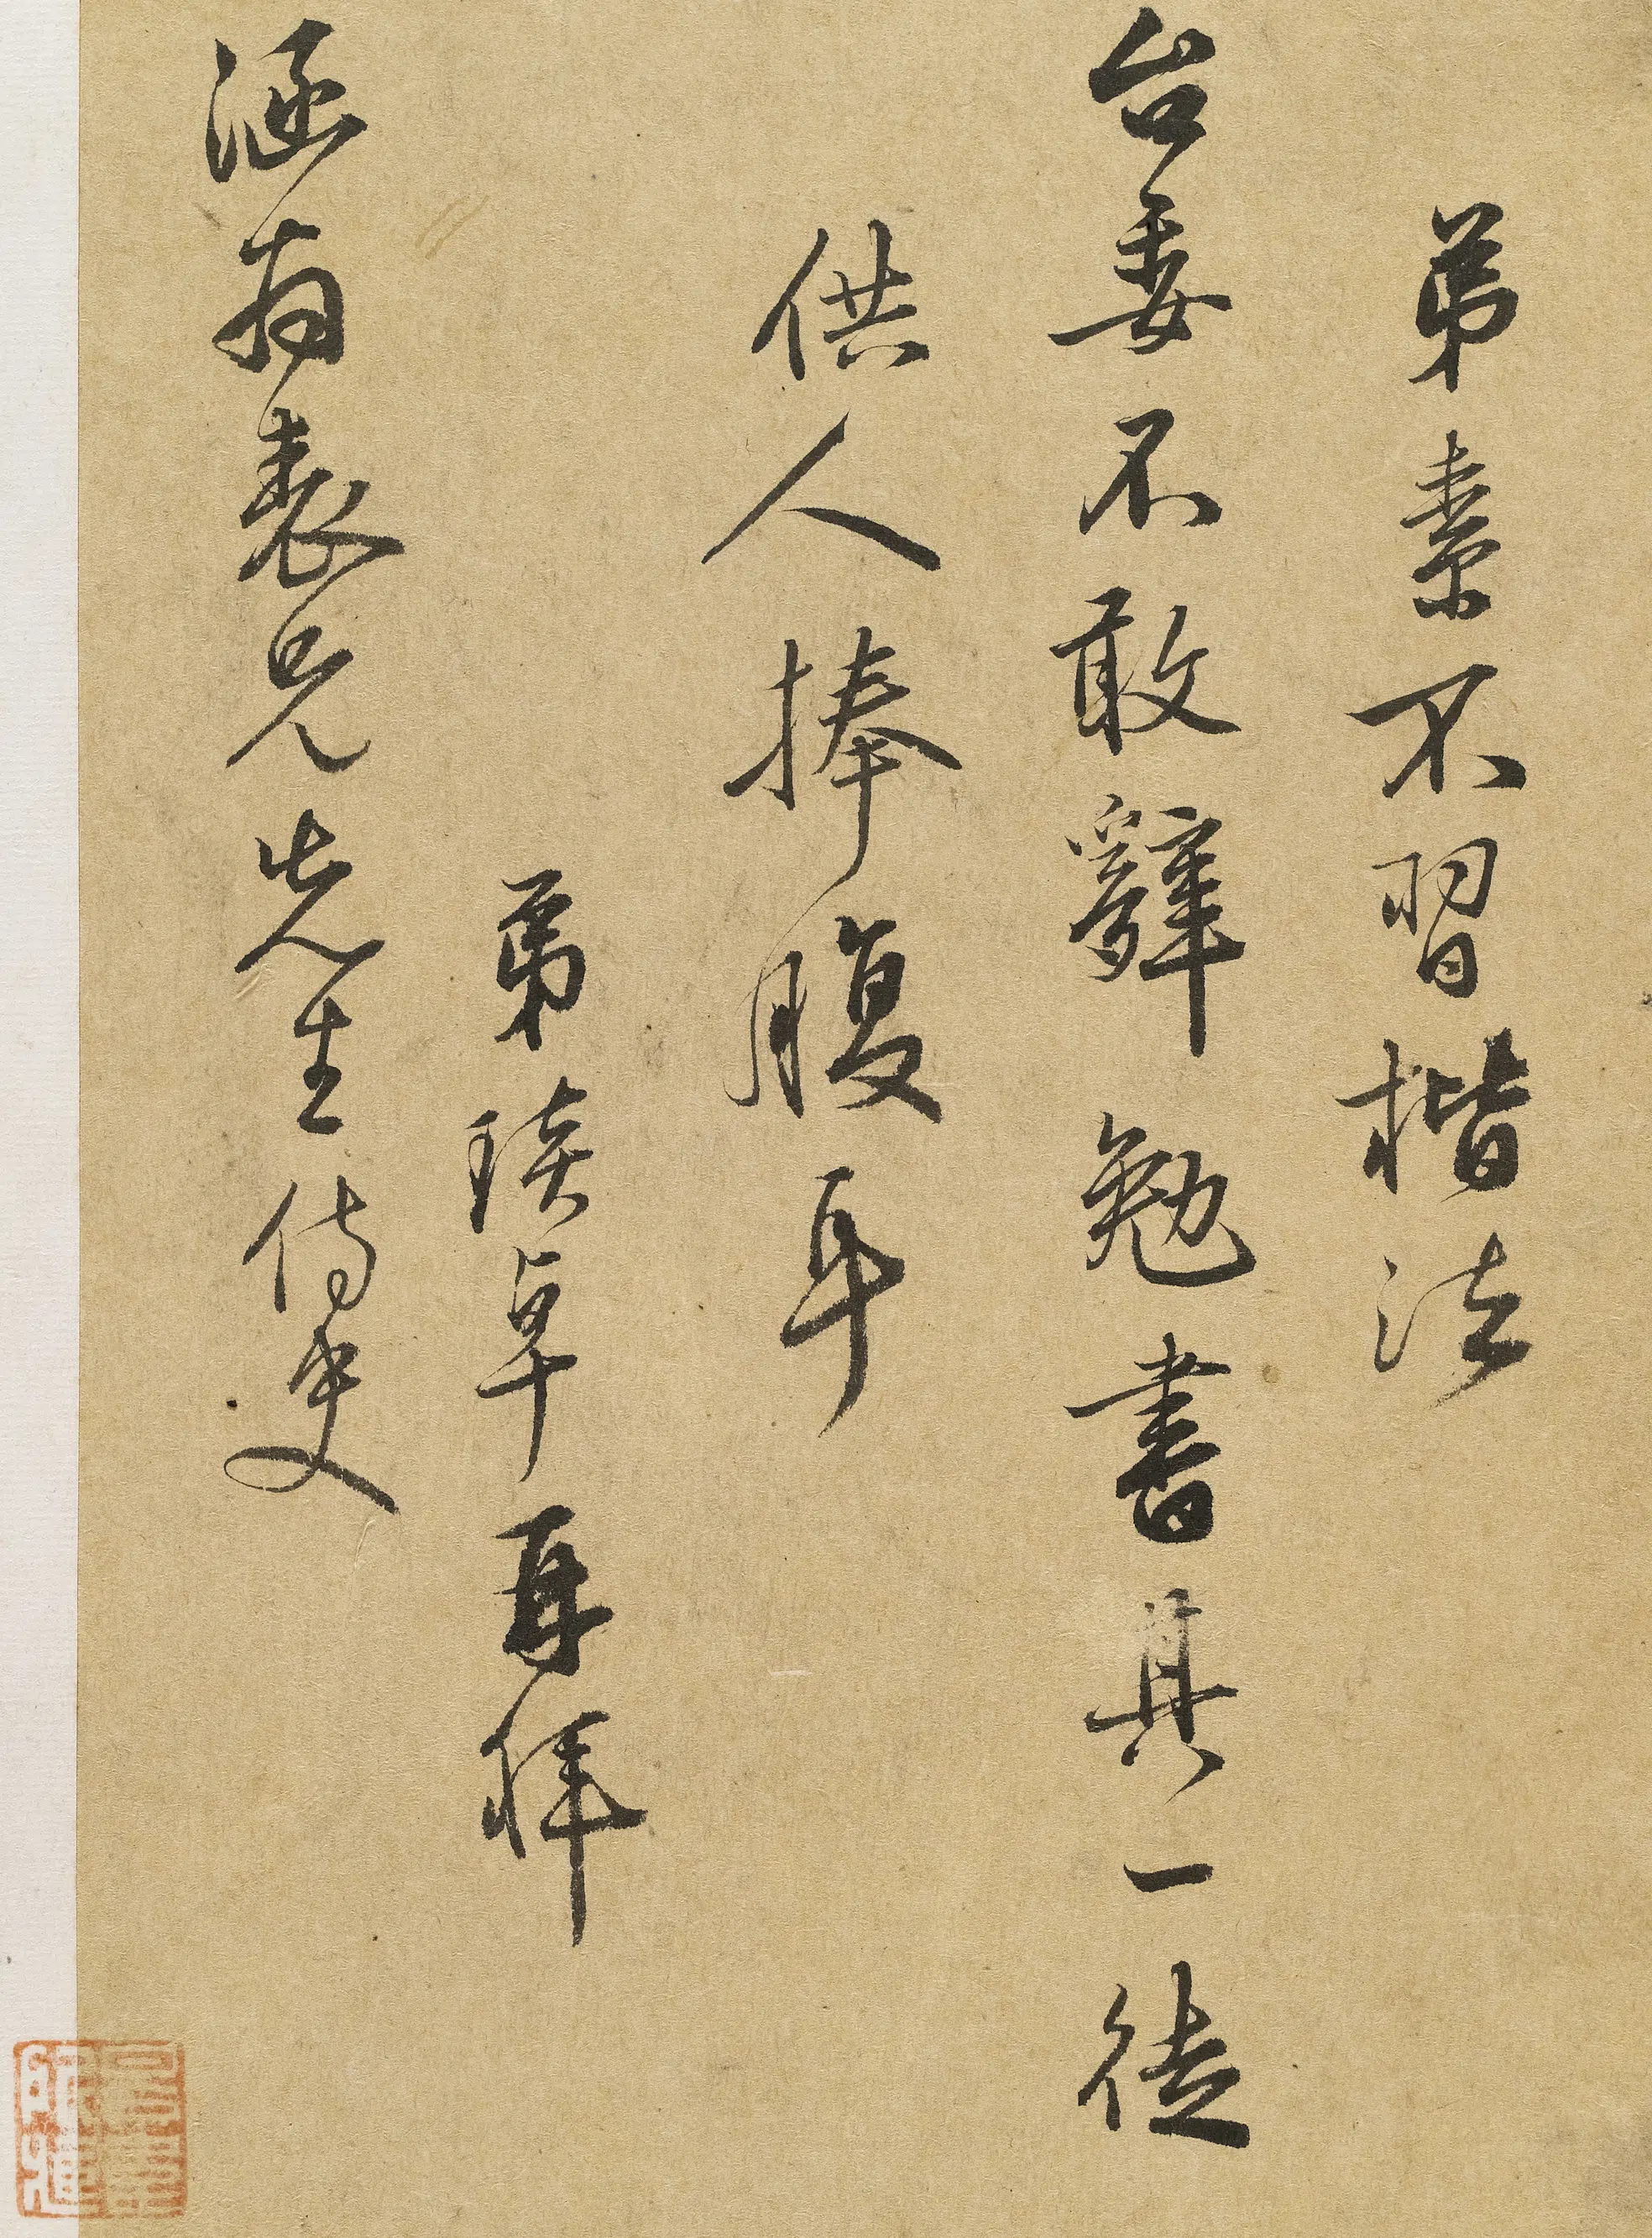 弟素不習楷法
台委不敢辭勉書其一徒
供人捧腹耳
弟琰卓再拜
涵翁表兄先生侍史